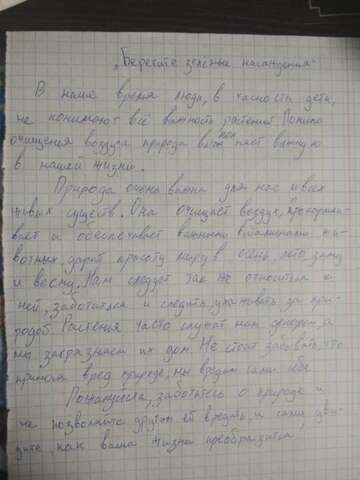 „Берегите зелёные насаждения"
В наше время люди, в часности дети,
не понимают всё важность растений. Помимо
очищения воздуха природа выполняет важную
в нашей жизни.
Природа очень важна для нас и всех
живых существ. Она очищает воздух,
вает и обеспечивает важными витаминами жи-
вотных, дарит красоту миру в осень, лето, зиму
и весну. Нам следует так же относиться к
ней, заботиться и следить, ухаживать за при-
родой. Растенья часто служат нам
мы их дом. Не стоит забывать, что
вред природе, мы вредим сами себе
Пожалуйста, заботьтесь о природе и
не позволяйте другим ей вредить, и сами уви-
дите, как ваша жизнь преобразится!